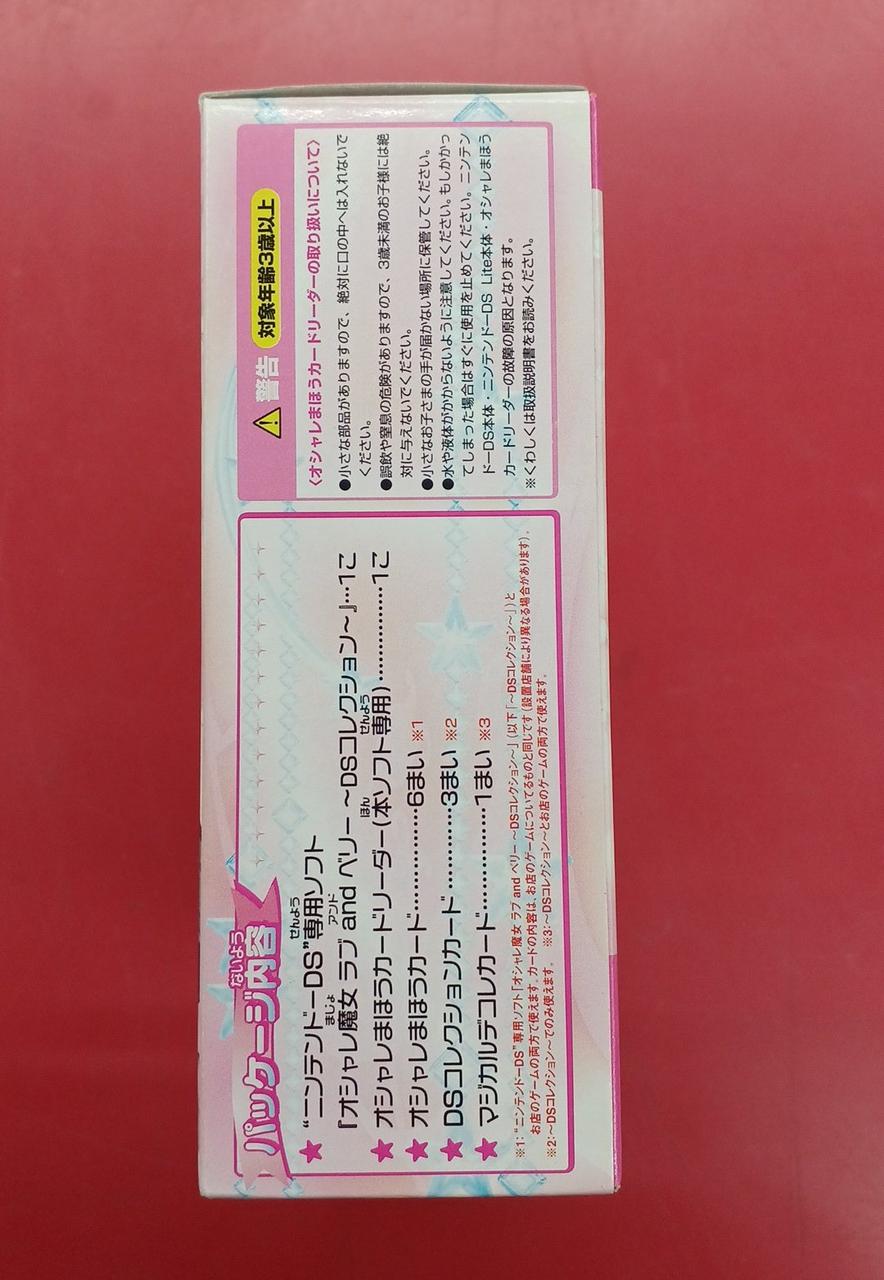 パッケージ内容
ないよう
★“ニンテンドーDS”専用ソフト
せんよう
『オシャレ魔女 ラブ and ベリー ～DSコレクション～』…1こ
まじょ
アンド
★オシャレまほうカードリーダー(本ソフト専用)………………1こ
ほん
せんよう
★オシャレまほうカード………………6まい ※1
★DSコレクションカード…………3まい ※2
★マジカルデコレカード……………1まい ※3
※1：“ニンテンドーDS”専用ソフト「オシャレ魔女 ラブ and ベリー ～DSコレクション～」(以下「～DSコレクション～」)と
お店のゲームの両方で使えます。カードの内容は、お店のゲームについてるものと同じです(設置店舗により異なる場合があります)。
※2：～DSコレクション～でのみ使えます。 ※3：～DSコレクション～とお店のゲームの両方で使えます。
⚠警告 対象年齢3歳以上
〈オシャレまほうカードリーダーの取り扱いについて〉
●小さな部品がありますので、絶対に口の中へは入れないで
ください。
●誤飲や窒息の危険がありますので、3歳未満のお子様には絶
対に与えないでください。
●小さなお子さまの手が届かない場所に保管してください。
●水や液体がかからないように注意してください。もしかかっ
てしまった場合はすぐに使用を止めてください。ニンテン
ドーDS本体・ニンテンドーDS Lite本体・オシャレまほう
カードリーダーの故障の原因となります。
※くわしくは取扱説明書をお読みください。